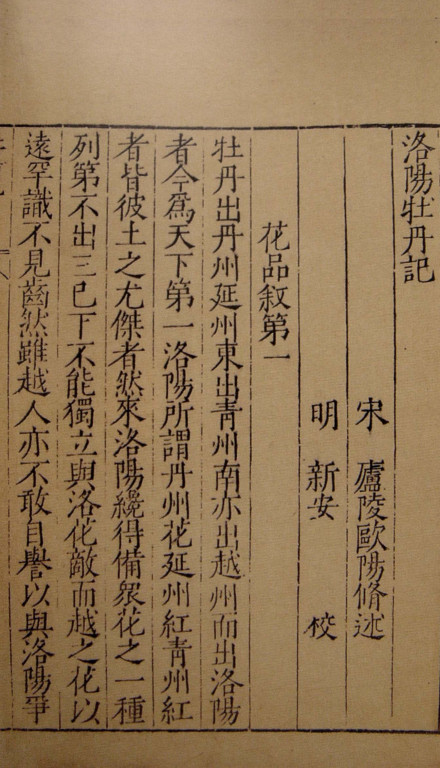 洛陽牡丹記
宋 廬陵歐陽脩述
明 新安 校
花品敘第一
牡丹出丹州延州東出青州南亦出越州而出洛陽
者今爲天下第一洛陽所謂丹州花延州紅青州紅
者皆彼土之尤傑者然來洛陽纔得備衆花之一種
列第不出三已下不能獨立與洛花敵而越之花以
遠罕識不見齒然雖越人亦不敢自譽以與洛陽爭